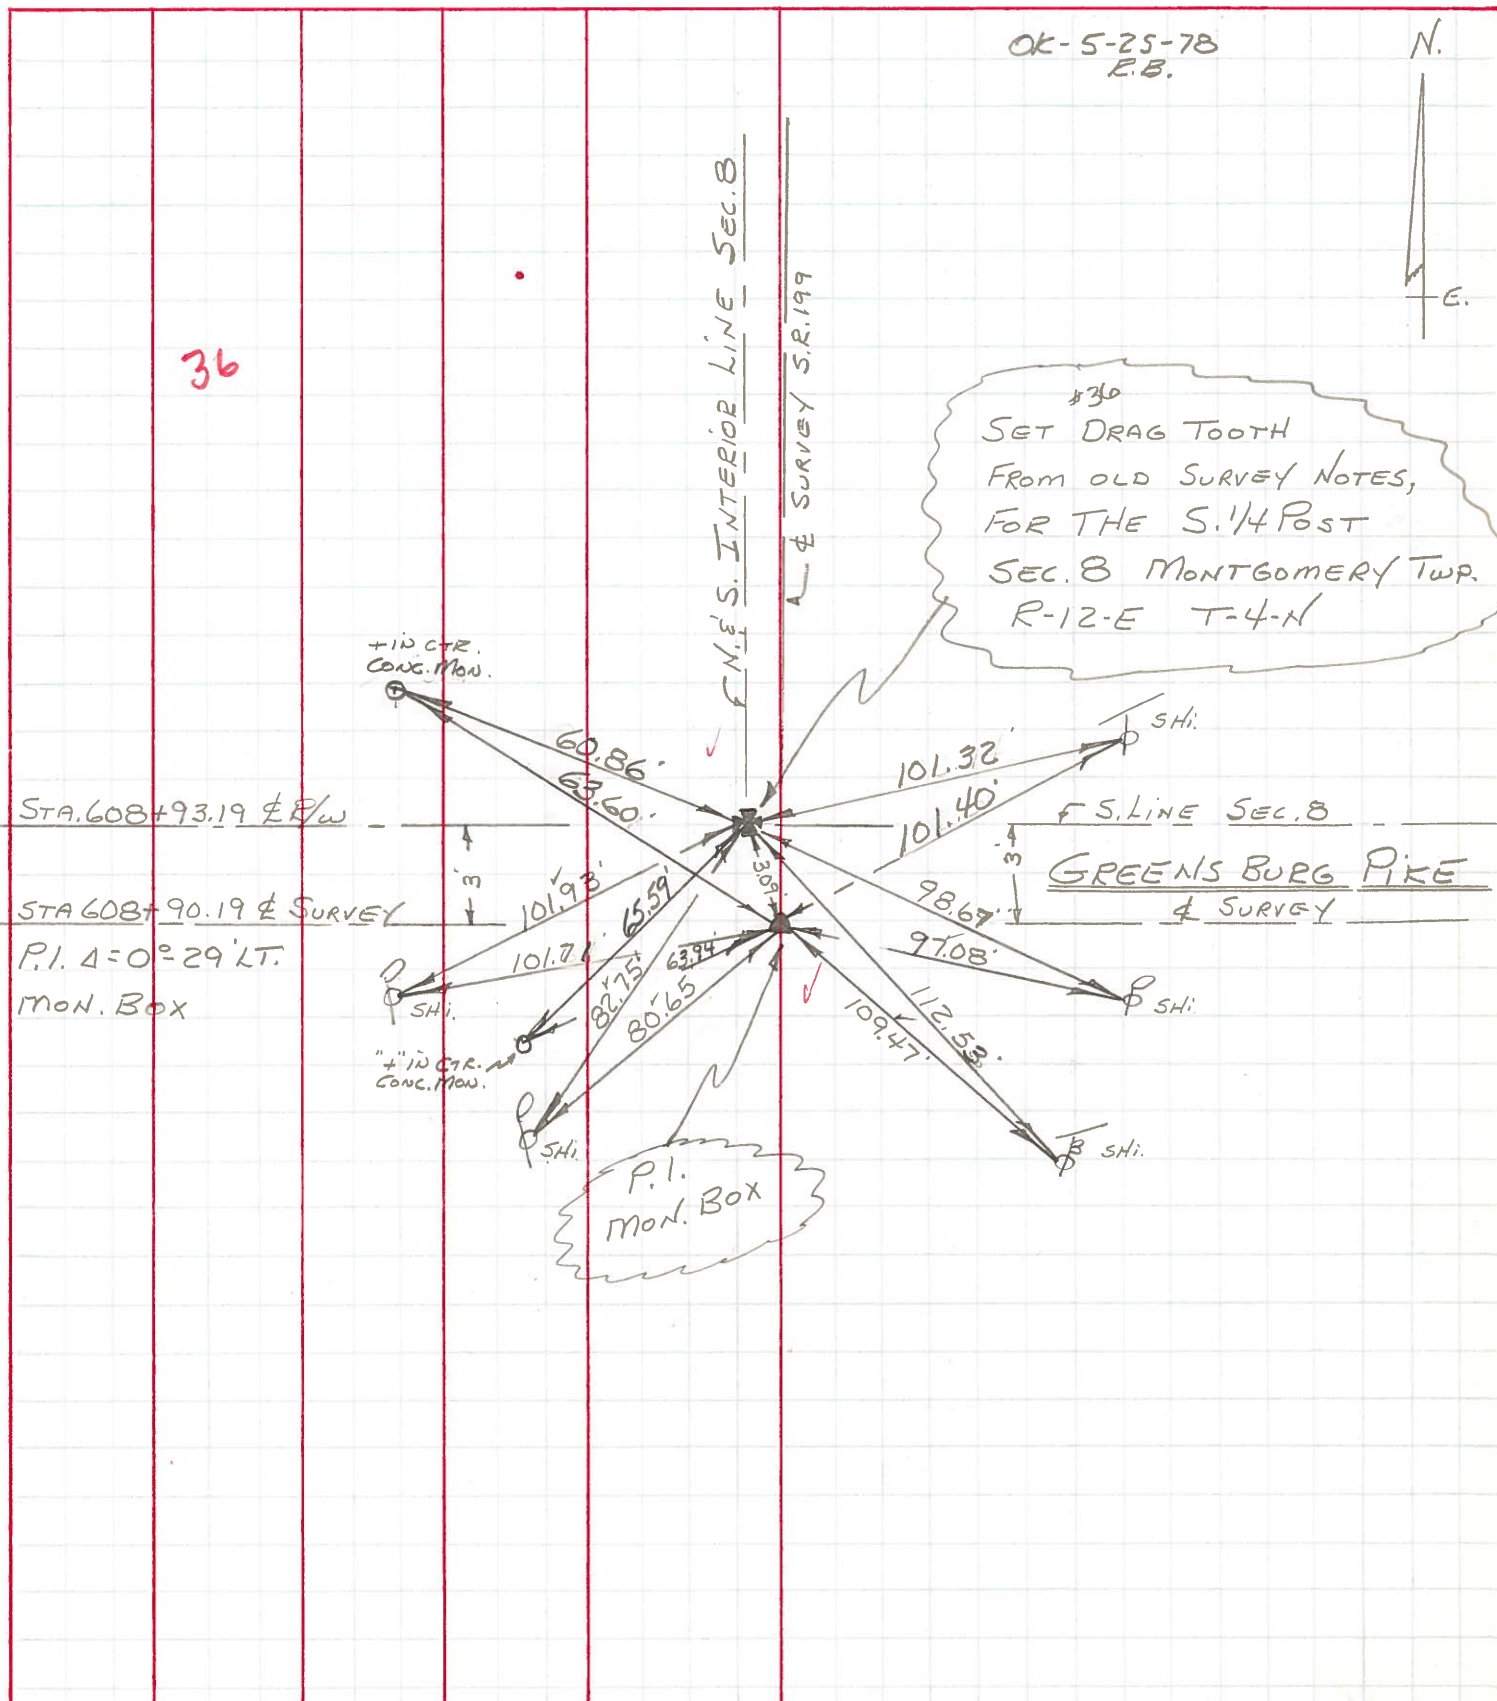 OK-5-25-78
R.B.
N.
E.
36
N. & S. INTERIOR LINE SEC. 8
℄ SURVEY S.R. 199
#36
SET DRAG TOOTH
FROM OLD SURVEY NOTES,
FOR THE S. 1/4 POST
SEC. 8 MONTGOMERY TWP.
R-12-E T-4-N
+ IN CTR.
CONC. MON.
SHI.
60.86'
63.60'
101.32'
101.40'
STA. 608+93.19 ℄ R/W
S. LINE SEC. 8
3'
3'
GREENSBURG PIKE
℄ SURVEY
STA 608+90.19 ℄ SURVEY
P.I. Δ = 0°29' LT.
MON. BOX
3.09'
101.93'
65.59'
98.67'
101.71'
63.94'
97.08'
82.75'
80.65
109.47'
112.53'
SHI.
SHI.
"+" IN CTR.
CONC. MON.
SHI.
SHI.
P.I.
MON. BOX